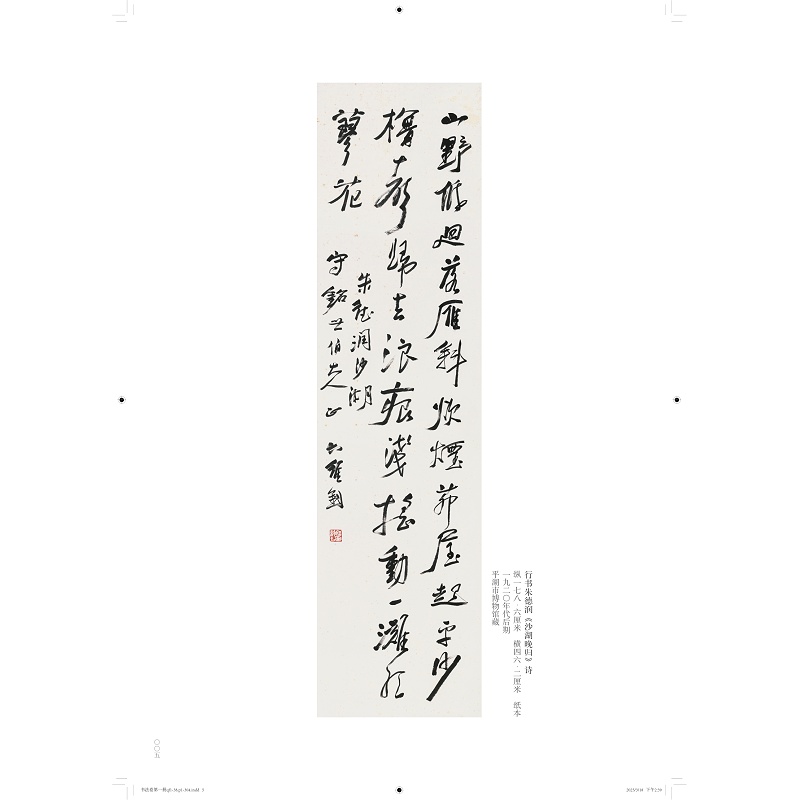 山野低迴落雁斜炊煙茅屋起平沙
櫓聲歸去浪痕淺搖動一灘紅
蓼花
朱德潤沙湖
守銘世伯大人正 六維釗
行书朱德润《沙湖晚归》诗
纵一七八·六厘米 横四六·二厘米 纸本
一九二〇年代后期
平湖市博物馆藏
〇〇五